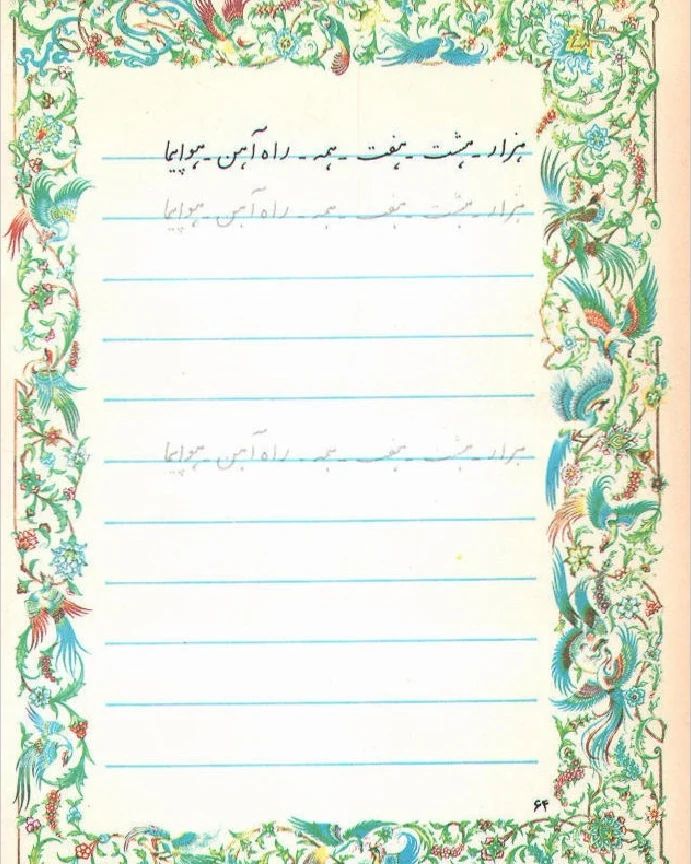 هزار ـ هشت ـ هفت ـ همه ـ راه‌آهن ـ هواپیما
هزار ـ هشت ـ هفت ـ همه ـ راه‌آهن ـ هواپیما
هزار ـ هشت ـ هفت ـ همه ـ راه‌آهن ـ هواپیما
۶۴